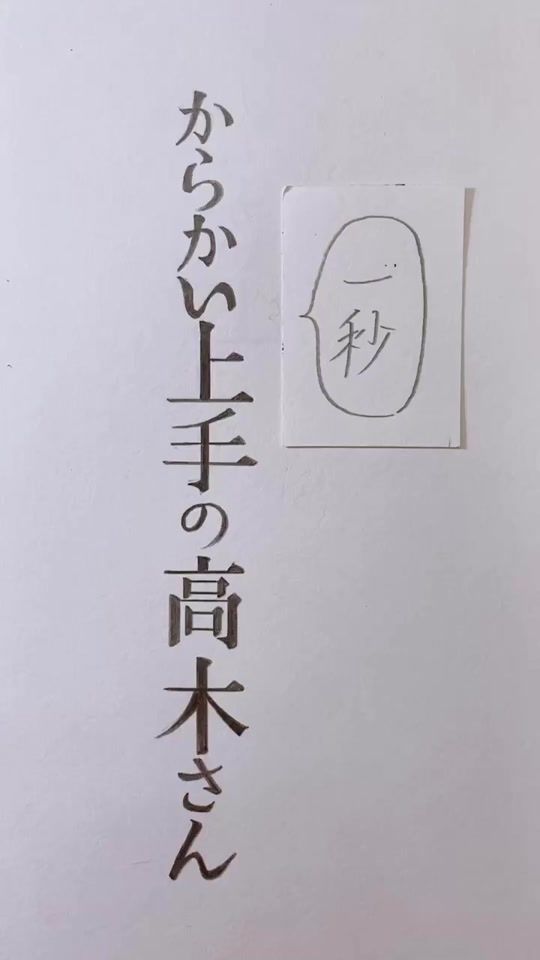 からかい上手の高木さん
一秒